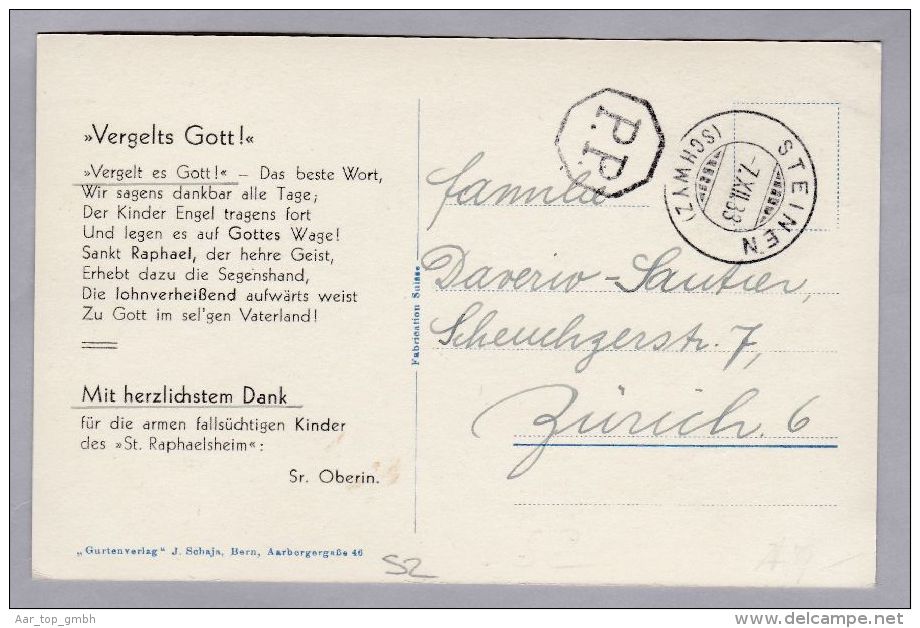 »Vergelts Gott!«
»Vergelt es Gott!« – Das beste Wort,
Wir sagens dankbar alle Tage;
Der Kinder Engel tragens fort
Und legen es auf Gottes Wage!
Sankt Raphael, der hehre Geist,
Erhebt dazu die Segenshand,
Die lohnverheißend aufwärts weist
Zu Gott im sel'gen Vaterland!
Mit herzlichstem Dank
für die armen fallsüchtigen Kinder
des »St. Raphaelsheim«:
Sr. Oberin.
„Gurtenverlag" J. Schaja, Bern, Aarbergergaße 46
Fabrication Suisse
P.P.
STEINEN
(SCHWYZ)
-7.XII.33
Familie
Daverio-Sautier,
Scheuchzerstr. 7,
Zürich. 6
SZ
Aar_top_gmbh
www.delcampe.net